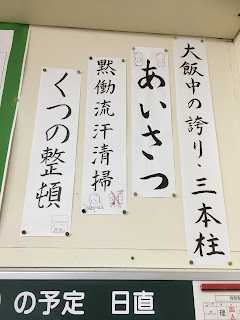 大飯中の誇り・三本柱
あいさつ
黙働流汗清掃
くつの整頓
の予定 日直